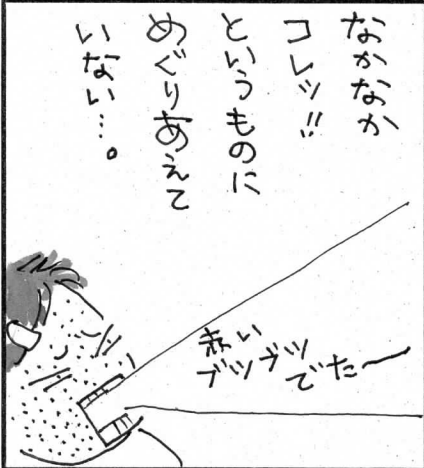 なかなか
コレッ!!
というものに
めぐりあえて
いない…。
赤い
ブツブツ
でた〜